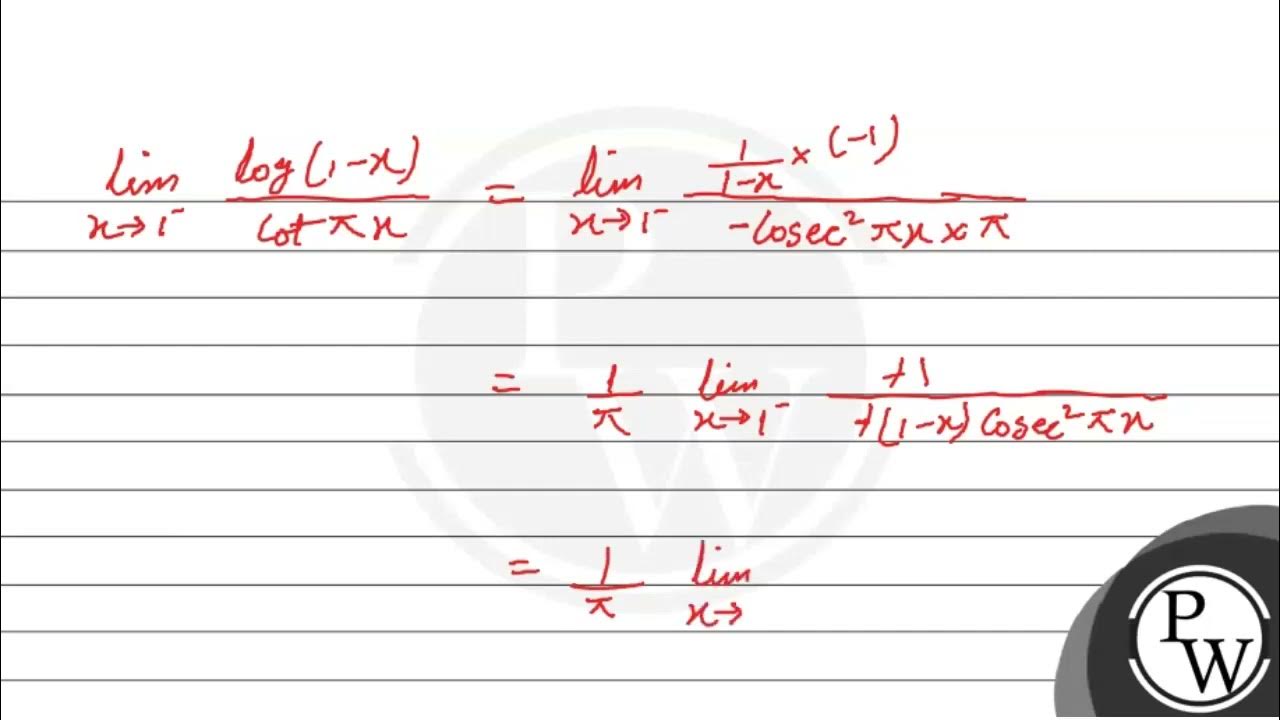 lim x→1⁻ log(1-x) / cot πx = lim x→1⁻ (1/(1-x) × (-1)) / (-cosec² πx × π)
= 1/π lim x→1⁻ +1 / (+(1-x) cosec² πx)
= 1/π lim x→
P W
PW